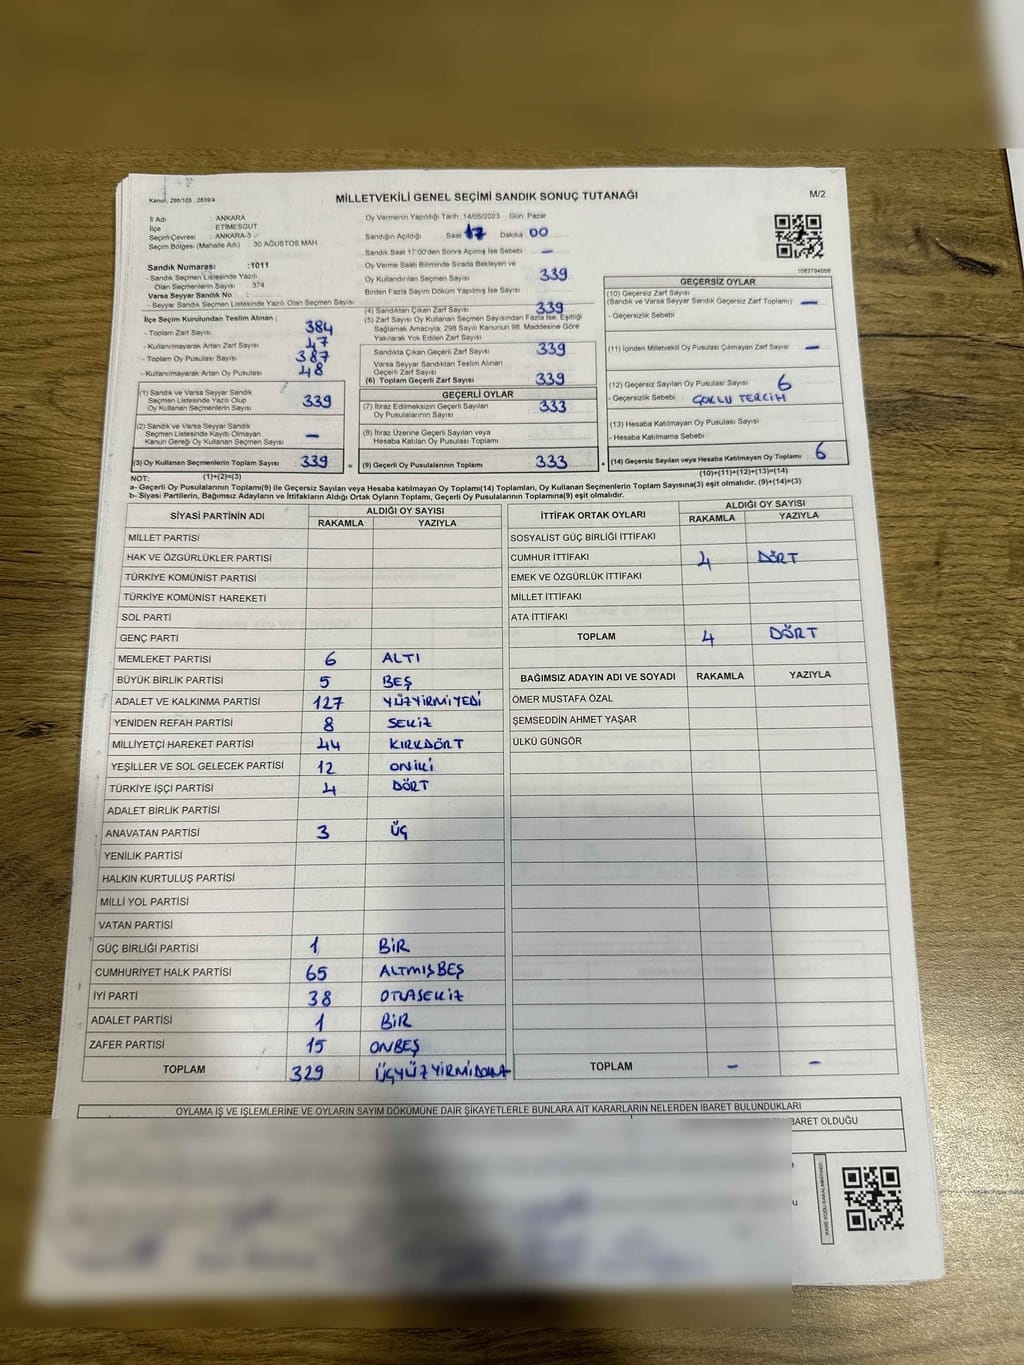 Kanun, 298/105 , 2839/4
MİLLETVEKİLİ GENEL SEÇİMİ SANDIK SONUÇ TUTANAĞI
M/2
İl Adı : ANKARA
İlçe : ETİMESGUT
Seçim Çevresi : ANKARA-3
Seçim Bölgesi (Mahalle Adı) : 30 AĞUSTOS MAH
Sandık Numarası :1011
- Sandık Seçmen Listesinde Yazılı
Olan Seçmenlerin Sayısı : 374
Varsa Seyyar Sandık No :
- Seyyar Sandık Seçmen Listesinde Yazılı Olan Seçmen Sayısı
İlçe Seçim Kurulundan Teslim Alınan ;
- Toplam Zarf Sayısı 384
- Kullanılmayarak Artan Zarf Sayısı 47
- Toplam Oy Pusulası Sayısı 387
- Kullanılmayarak Artan Oy Pusulası 48
(1) Sandık ve Varsa Seyyar Sandık
Seçmen Listesinde Yazılı Olup
Oy Kullanan Seçmenlerin Sayısı 339
(2) Sandık ve Varsa Seyyar Sandık
Seçmen Listesinde Kayıtlı Olmayan
Kanun Gereği Oy Kullanan Seçmen Sayısı –
(3) Oy Kullanan Seçmenlerin Toplam Sayısı 339 =
(1)+(2)=(3)
Oy Vermenin Yapıldığı Tarih : 14/05/2023 Gün: Pazar
Sandığın Açıldığı Saat 17 Dakika 00
Sandık Saat 17:00'den Sonra Açılmış İse Sebebi –
Oy Verme Saati Bitiminde Sırada Bekleyen ve
Oy Kullandırılan Seçmen Sayısı 339
Birden Fazla Sayım Döküm Yapılmış İse Sayısı
(4) Sandıktan Çıkan Zarf Sayısı 339
(5) Zarf Sayısı Oy Kullanan Seçmen Sayısından Fazla İse, Eşitliği
Sağlamak Amacıyla, 298 Sayılı Kanunun 98. Maddesine Göre
Yakılarak Yok Edilen Zarf Sayısı
Sandıkta Çıkan Geçerli Zarf Sayısı 339
Varsa Seyyar Sandıktan Teslim Alınan
Geçerli Zarf Sayısı
(6) Toplam Geçerli Zarf Sayısı 339
GEÇERLİ OYLAR
(7) İtiraz Edilmeksizin Geçerli Sayılan
Oy Pusulalarının Sayısı 333
(8) İtiraz Üzerine Geçerli Sayılan veya
Hesaba Katılan Oy Pusulası Toplamı
(9) Geçerli Oy Pusulalarının Toplamı 333 +
1083794608
GEÇERSİZ OYLAR
(10) Geçersiz Zarf Sayısı
(Sandık ve Varsa Seyyar Sandık Geçersiz Zarf Toplamı) –
- Geçersizlik Sebebi :
(11) İçinden Milletvekili Oy Pusulası Çıkmayan Zarf Sayısı –
(12) Geçersiz Sayılan Oy Pusulası Sayısı 6
- Geçersizlik Sebebi : ÇOKLU TERCİH
(13) Hesaba Katılmayan Oy Pusulası Sayısı
- Hesaba Katılmama Sebebi :
(14) Geçersiz Sayılan veya Hesaba Katılmayan Oy Toplamı : 6
(10)+(11)+(12)+(13)=(14)
NOT:
a- Geçerli Oy Pusulalarının Toplamı(9) ile Geçersiz Sayılan veya Hesaba katılmayan Oy Toplamı(14) Toplamları, Oy Kullanan Seçmenlerin Toplam Sayısına(3) eşit olmalıdır. (9)+(14)=(3)
b- Siyasi Partilerin, Bağımsız Adayların ve İttifakların Aldığı Ortak Oyların Toplamı, Geçerli Oy Pusulalarının Toplamına(9) eşit olmalıdır.
SİYASİ PARTİNİN ADI ALDIĞI OY SAYISI
RAKAMLA YAZIYLA
MİLLET PARTİSİ
HAK VE ÖZGÜRLÜKLER PARTİSİ
TÜRKİYE KOMÜNİST PARTİSİ
TÜRKİYE KOMÜNİST HAREKETİ
SOL PARTİ
GENÇ PARTİ
MEMLEKET PARTİSİ 6 ALTI
BÜYÜK BİRLİK PARTİSİ 5 BEŞ
ADALET VE KALKINMA PARTİSİ 127 YÜZYİRMİYEDİ
YENİDEN REFAH PARTİSİ 8 SEKİZ
MİLLİYETÇİ HAREKET PARTİSİ 44 KIRKDÖRT
YEŞİLLER VE SOL GELECEK PARTİSİ 12 ONİKİ
TÜRKİYE İŞÇİ PARTİSİ 4 DÖRT
ADALET BİRLİK PARTİSİ
ANAVATAN PARTİSİ 3 ÜÇ
YENİLİK PARTİSİ
HALKIN KURTULUŞ PARTİSİ
MİLLİ YOL PARTİSİ
VATAN PARTİSİ
GÜÇ BİRLİĞİ PARTİSİ 1 BİR
CUMHURİYET HALK PARTİSİ 65 ALTMIŞBEŞ
İYİ PARTİ 38 OTUZSEKİZ
ADALET PARTİSİ 1 BİR
ZAFER PARTİSİ 15 ONBEŞ
TOPLAM 329 ÜÇYÜZYİRMİDOKUZ
İTTİFAK ORTAK OYLARI ALDIĞI OY SAYISI
RAKAMLA YAZIYLA
SOSYALİST GÜÇ BİRLİĞİ İTTİFAKI
CUMHUR İTTİFAKI 4 DÖRT
EMEK VE ÖZGÜRLÜK İTTİFAKI
MİLLET İTTİFAKI
ATA İTTİFAKI
TOPLAM 4 DÖRT
BAĞIMSIZ ADAYIN ADI VE SOYADI RAKAMLA YAZIYLA
ÖMER MUSTAFA ÖZAL
ŞEMSEDDİN AHMET YAŞAR
ÜLKÜ GÜNGÖR
TOPLAM – –
OYLAMA İŞ VE İŞLEMLERİNE VE OYLARIN SAYIM DÖKÜMÜNE DAİR ŞİKAYETLERLE BUNLARA AİT KARARLARIN NELERDEN İBARET BULUNDUKLARI
İBARET OLDUĞU